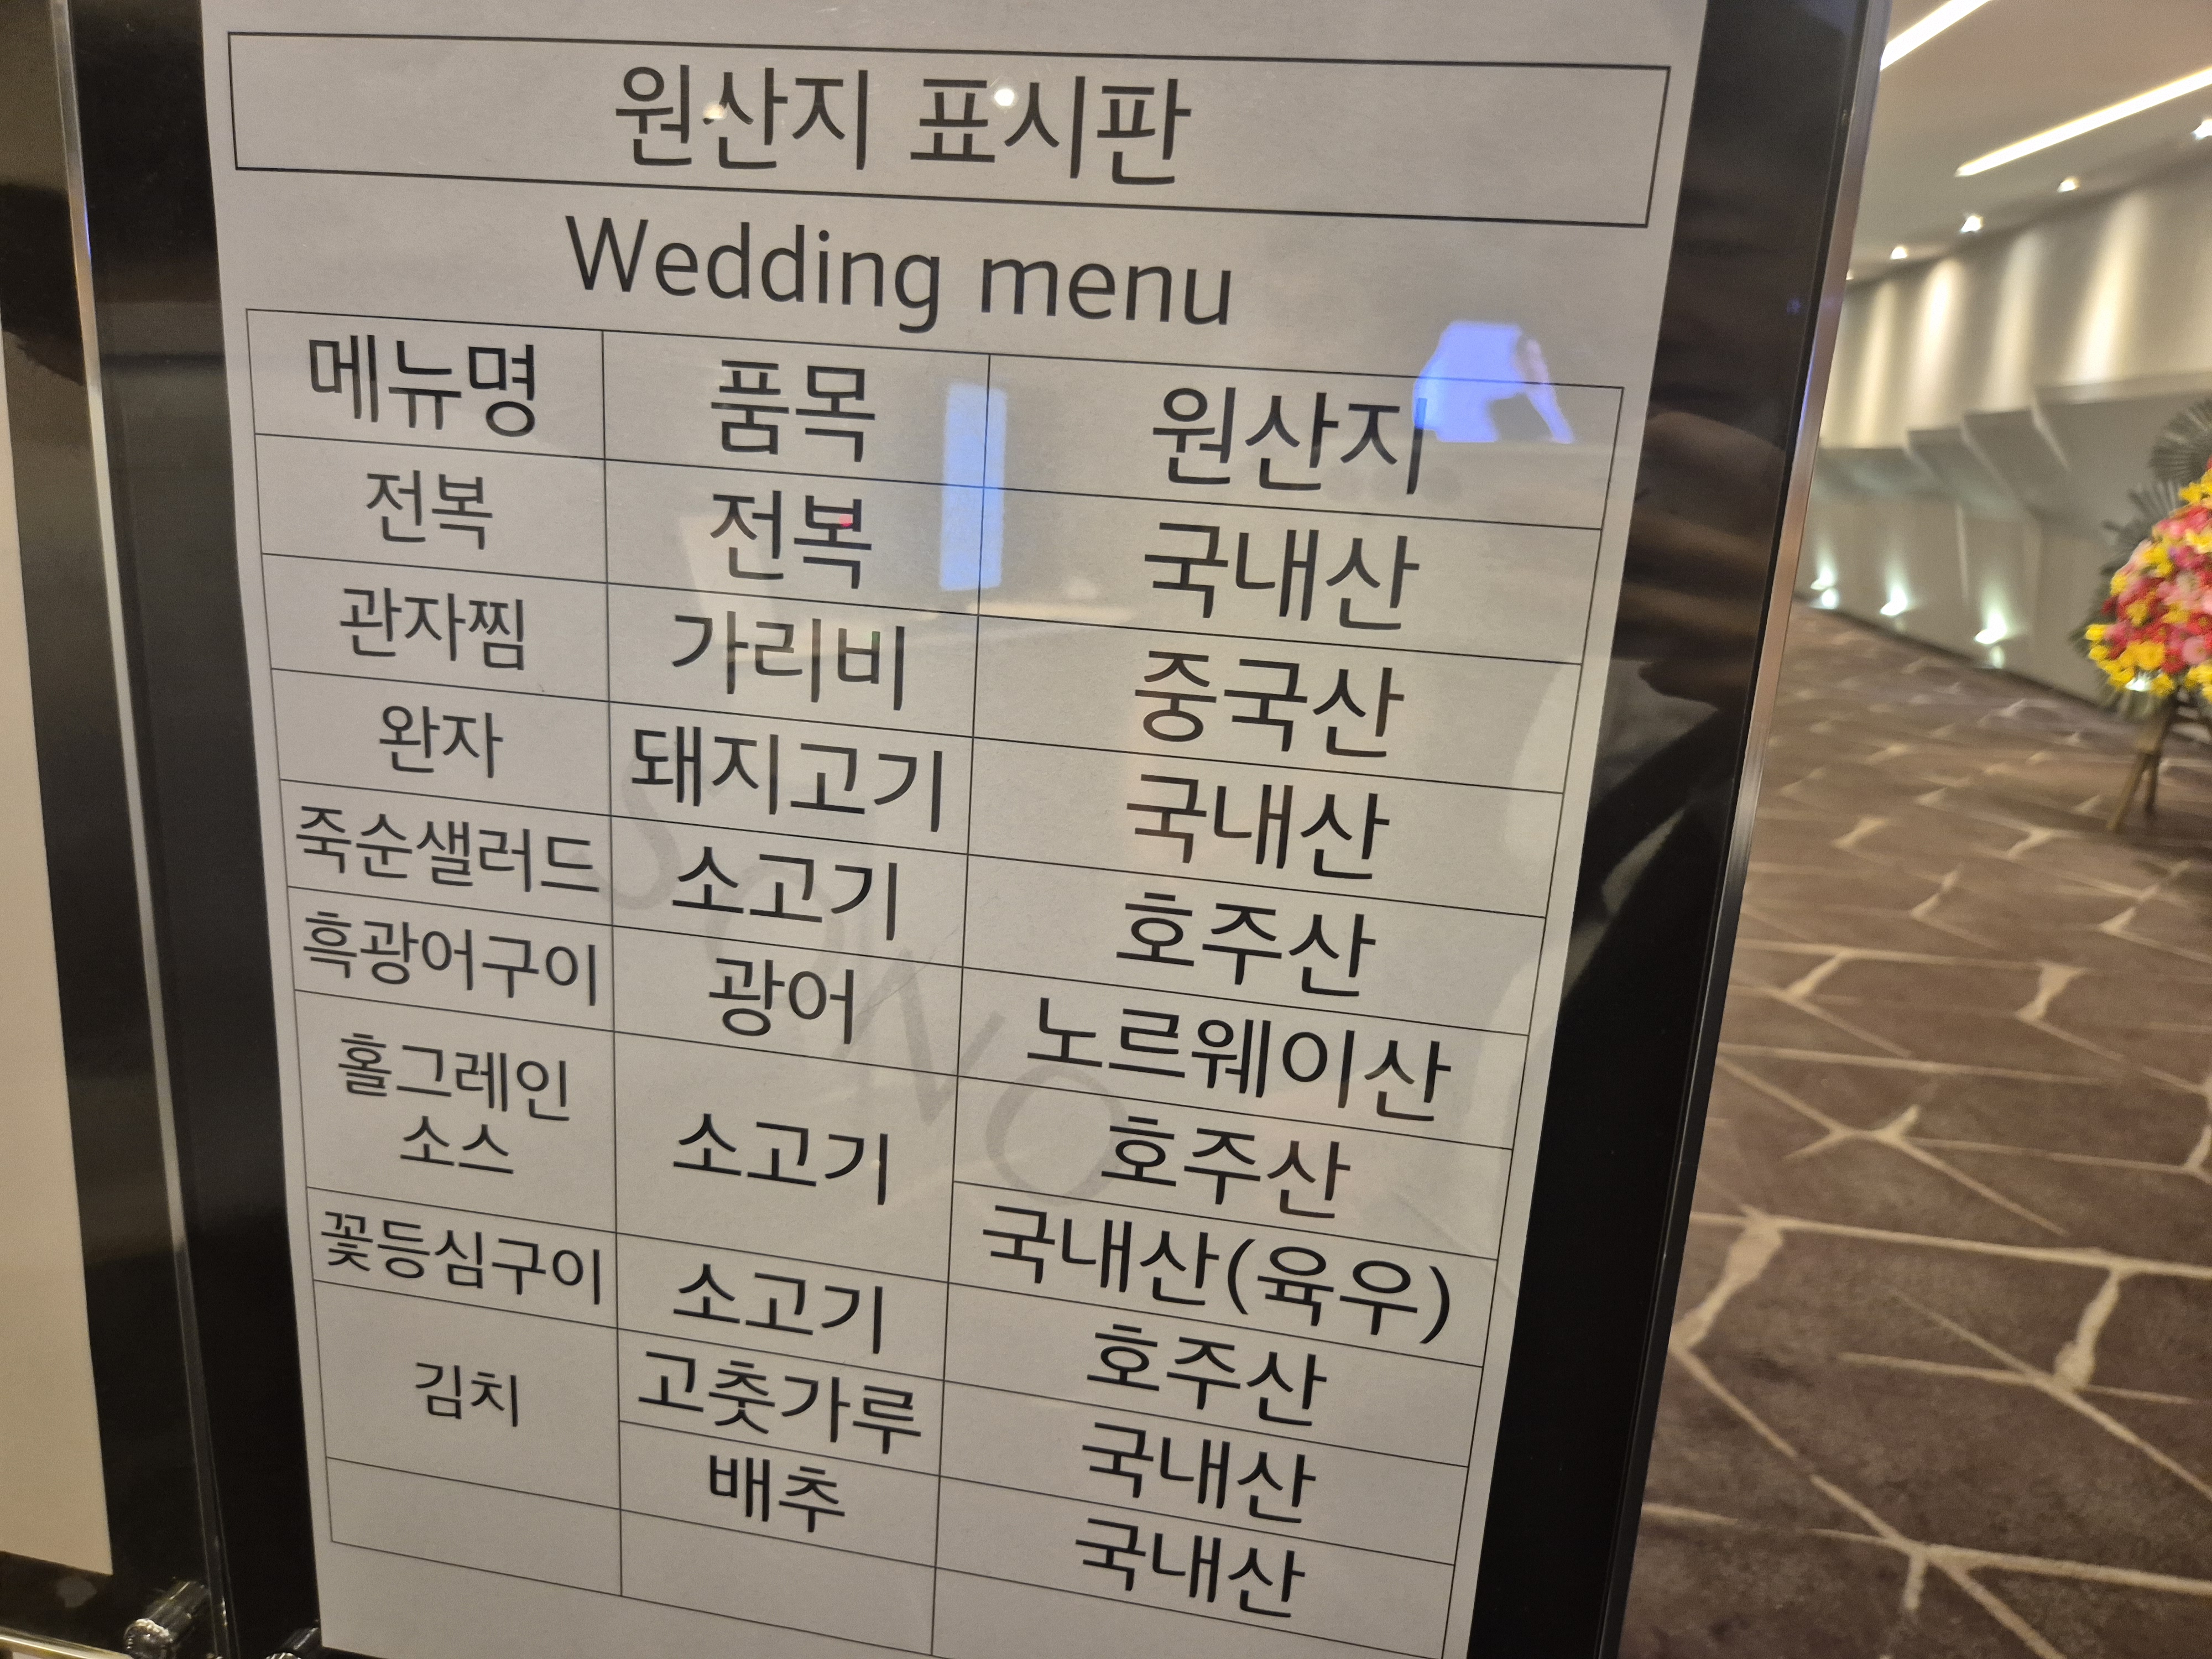 원산지 표시판
Wedding menu
메뉴명 품목 원산지
전복 전복 국내산
관자찜 가리비 중국산
완자 돼지고기 국내산
죽순샐러드 소고기 호주산
흑광어구이 광어 노르웨이산
홀그레인
소스 소고기 호주산
국내산(육우)
꽃등심구이 소고기 호주산
김치 고춧가루 국내산
배추 국내산
SONO